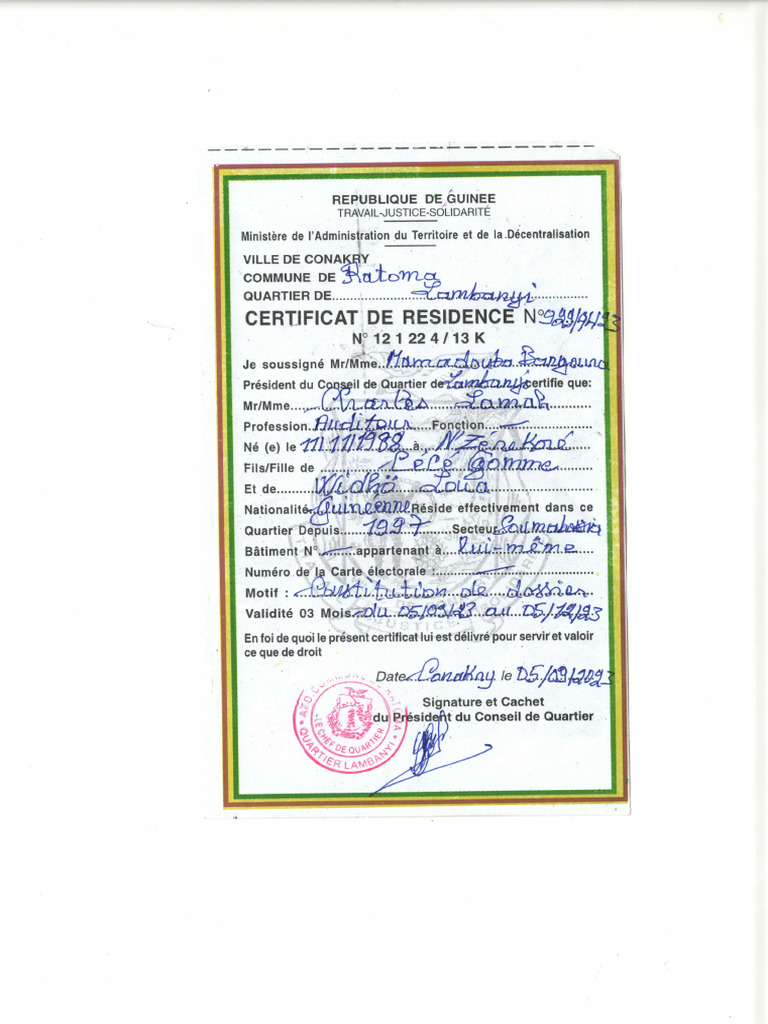 REPUBLIQUE DE GUINEE
TRAVAIL-JUSTICE-SOLIDARITÉ
Ministère de l'Administration du Territoire et de la Décentralisation
VILLE DE CONAKRY
COMMUNE DE Ratoma
QUARTIER DE Lambanyi
CERTIFICAT DE RESIDENCE N°
N° 12 1 22 4 / 13 K
Je soussigné Mr/Mme Mamadouba Bangoura
Président du Conseil de Quartier de Lambanyi certifie que:
Mr/Mme Charles Lamah
Profession Auditeur Fonction —
Né (e) le 11/11/1988 à N'Zerekoré
Fils/Fille de Cécé Gomme
Et de Loua
Nationalité Guinéenne Réside effectivement dans ce
Quartier Depuis 1997 Secteur
Bâtiment N° — appartenant à lui-même
Numéro de la Carte électorale : —
Motif : Constitution de dossier
Validité 03 Mois du 05/09/23 au 05/12/23
En foi de quoi le présent certificat lui est délivré pour servir et valoir
ce que de droit
Date Conakry le 05/09/2023
Signature et Cachet
du Président du Conseil de Quartier
LE CHEF DE QUARTIER
QUARTIER LAMBANYI